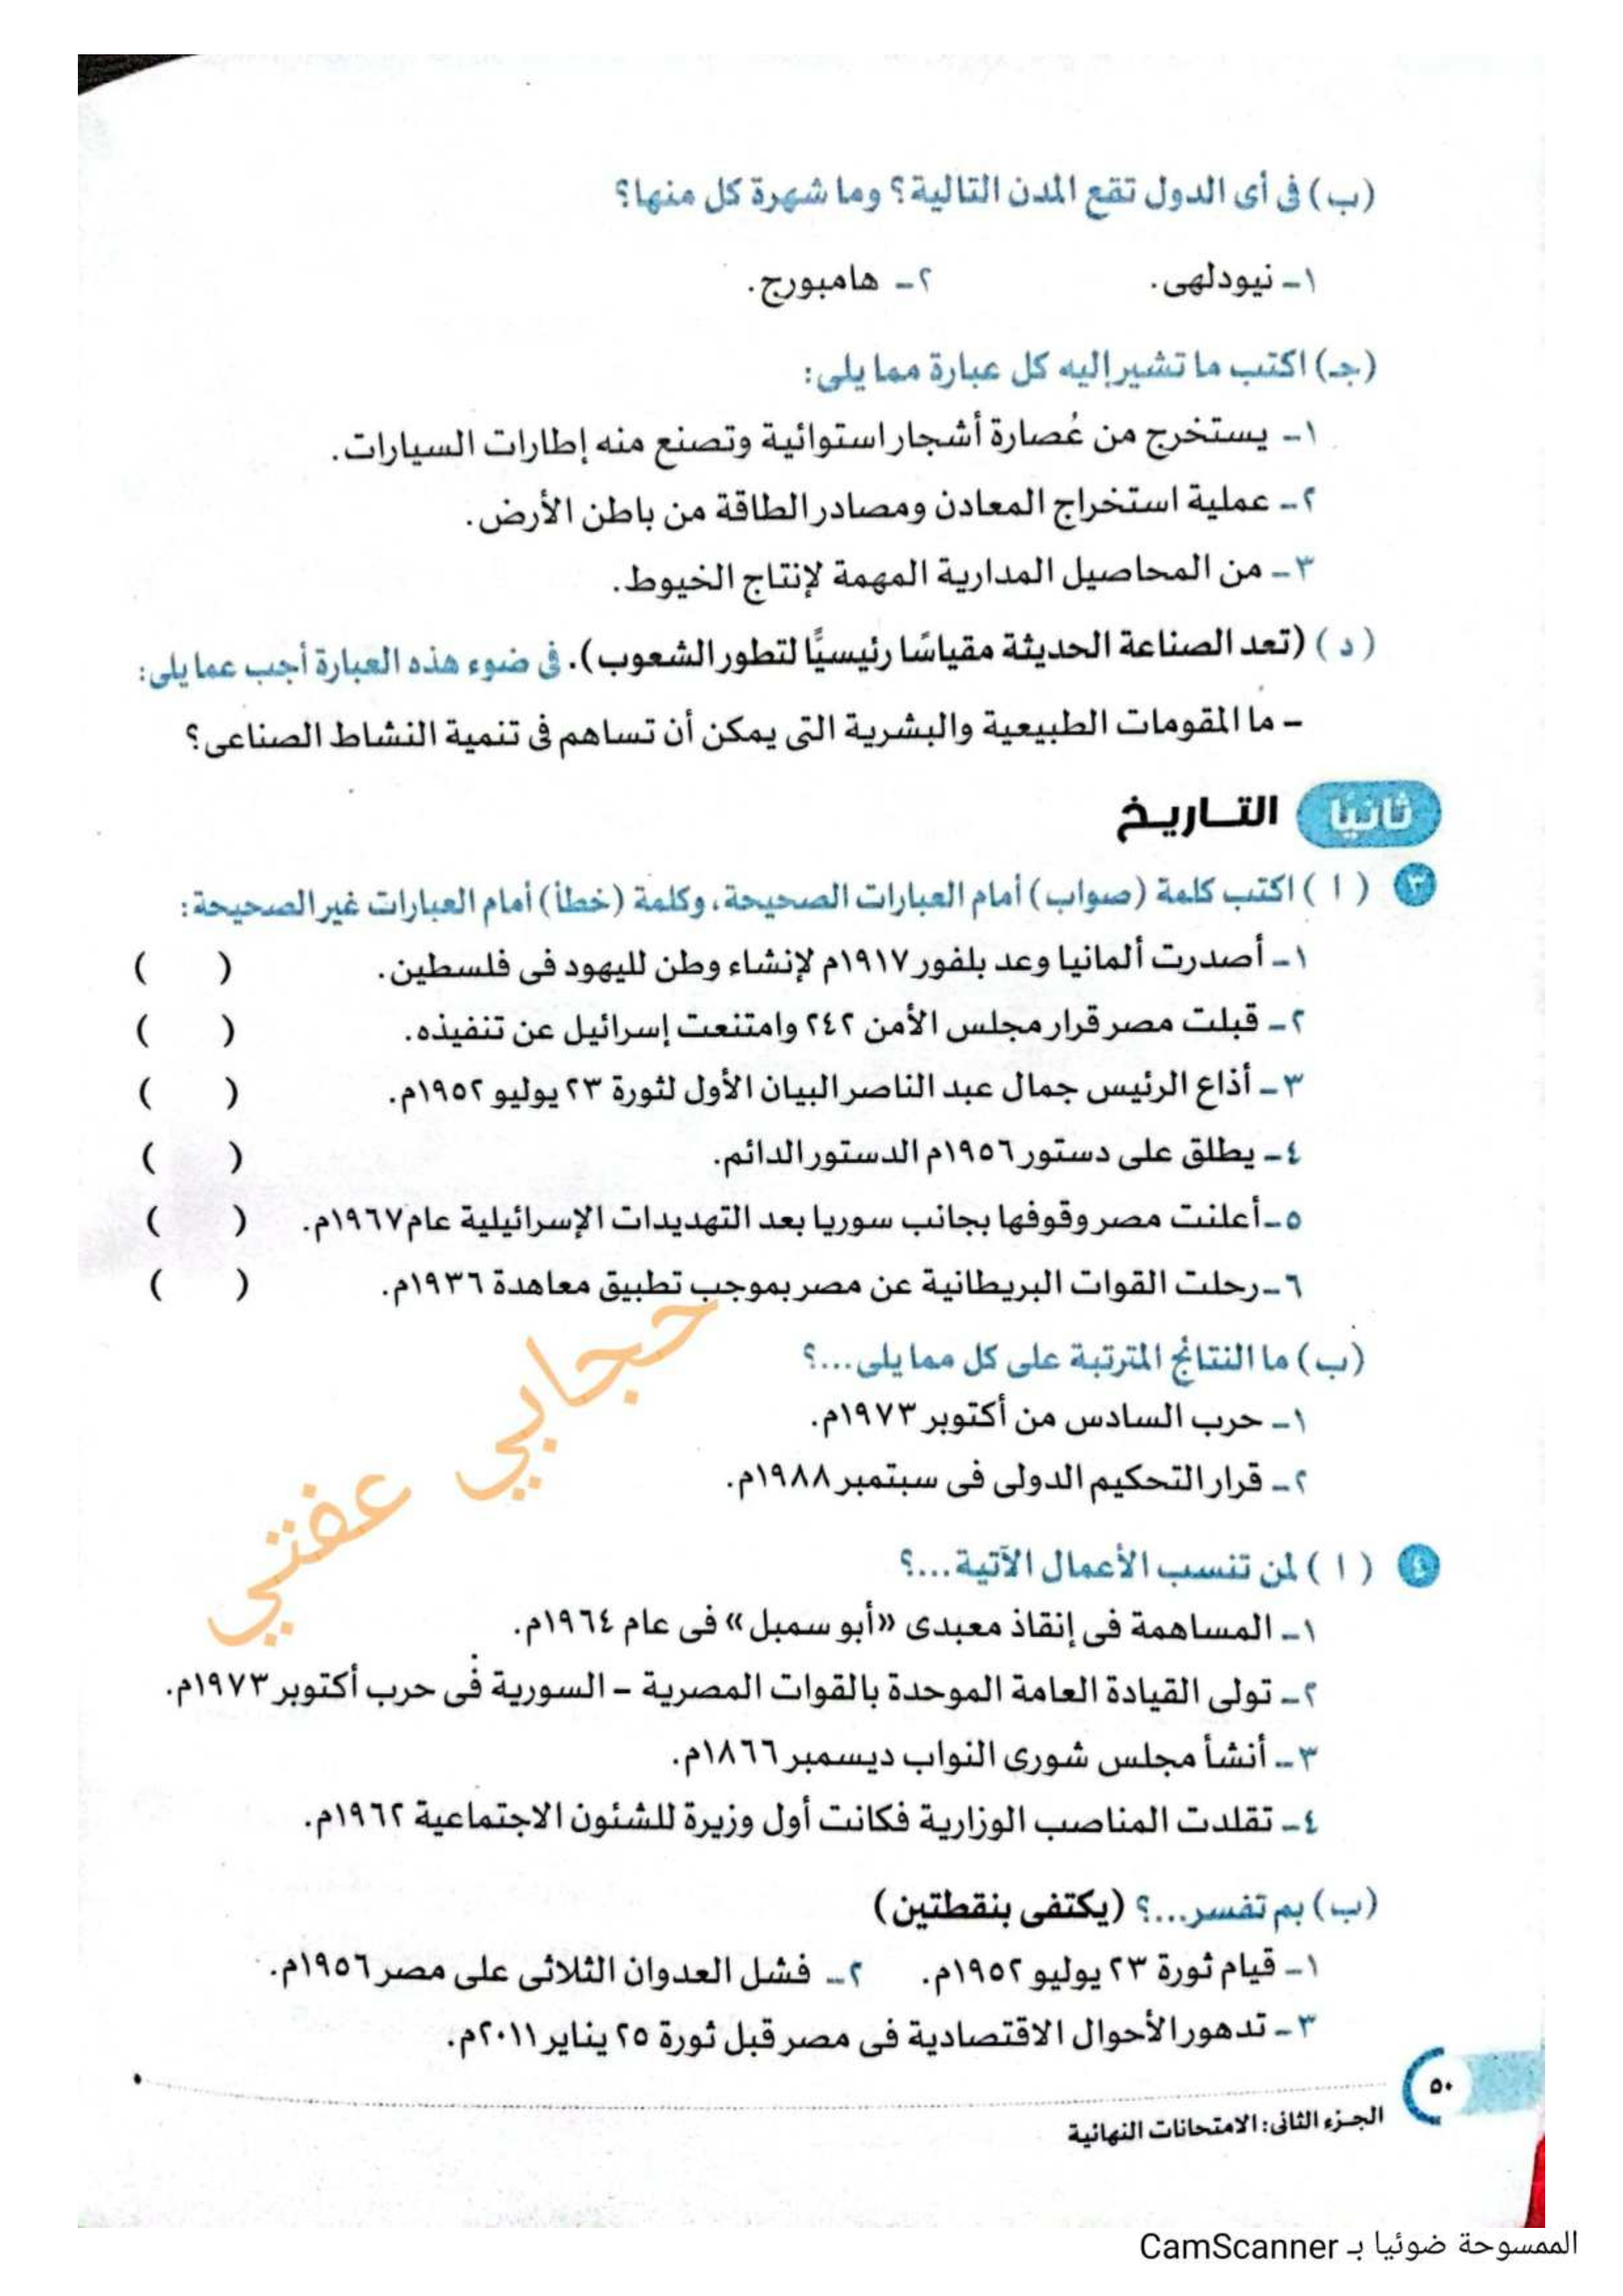 (ب) فى أى الدول تقع المدن التالية؟ وما شهرة كل منها؟
١- نيودلهى. ٢- هامبورج.
(جـ) اكتب ما تشير إليه كل عبارة مما يلى:
١- يستخرج من عُصارة أشجار استوائية وتصنع منه إطارات السيارات.
٢- عملية استخراج المعادن ومصادر الطاقة من باطن الأرض.
٣- من المحاصيل المدارية المهمة لإنتاج الخيوط.
(د) (تعد الصناعة الحديثة مقياسًا رئيسيًّا لتطور الشعوب). فى ضوء هذه العبارة أجب عما يلى:
- ما المقومات الطبيعية والبشرية التى يمكن أن تساهم فى تنمية النشاط الصناعى؟
ثانيًا التاريخ
٣ (ا) اكتب كلمة (صواب) أمام العبارات الصحيحة، وكلمة (خطأ) أمام العبارات غير الصحيحة:
١- أصدرت ألمانيا وعد بلفور ١٩١٧م لإنشاء وطن لليهود فى فلسطين. ( )
٢- قبلت مصر قرار مجلس الأمن ٢٤٢ وامتنعت إسرائيل عن تنفيذه. ( )
٣- أذاع الرئيس جمال عبد الناصر البيان الأول لثورة ٢٣ يوليو ١٩٥٢م. ( )
٤- يطلق على دستور ١٩٥٦م الدستور الدائم. ( )
٥- أعلنت مصر وقوفها بجانب سوريا بعد التهديدات الإسرائيلية عام ١٩٦٧م. ( )
٦- رحلت القوات البريطانية عن مصر بموجب تطبيق معاهدة ١٩٣٦م. ( )
(ب) ما النتائج المترتبة على كل مما يلى...؟
١- حرب السادس من أكتوبر ١٩٧٣م.
٢- قرار التحكيم الدولى فى سبتمبر ١٩٨٨م.
حجابي عفتي
٤ (ا) لمن تنسب الأعمال الآتية...؟
١- المساهمة فى إنقاذ معبدى «أبو سمبل» فى عام ١٩٦٤م.
٢- تولى القيادة العامة الموحدة بالقوات المصرية - السورية فى حرب أكتوبر ١٩٧٣م.
٣- أنشأ مجلس شورى النواب ديسمبر ١٨٦٦م.
٤- تقلدت المناصب الوزارية فكانت أول وزيرة للشئون الاجتماعية ١٩٦٢م.
(ب) بم تفسر...؟ (يكتفى بنقطتين)
١- قيام ثورة ٢٣ يوليو ١٩٥٢م. ٢- فشل العدوان الثلاثى على مصر ١٩٥٦م.
٣- تدهور الأحوال الاقتصادية فى مصر قبل ثورة ٢٥ يناير ٢٠١١م.
٥٠
الجزء الثانى: الامتحانات النهائية
الممسوحة ضوئيا بـ CamScanner